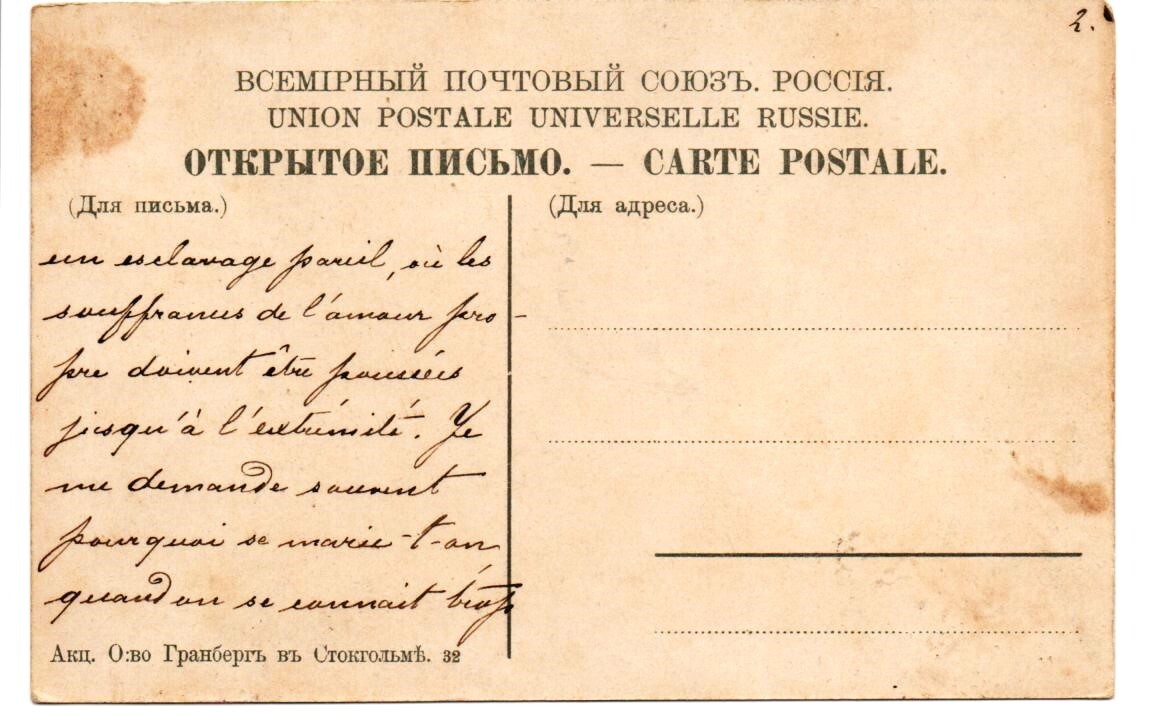 2.
ВСЕМІРНЫЙ ПОЧТОВЫЙ СОЮЗЪ. РОССІЯ.
UNION POSTALE UNIVERSELLE RUSSIE.
ОТКРЫТОЕ ПИСЬМО. — CARTE POSTALE.
(Для письма.)
(Для адреса.)
un esclavage pareil, où les
souffrances de l'amour pro-
pre doivent être poussées
jusqu'à l'extrémité. Je
me demande souvent
pourquoi se marie-t-on
quand on se connait trop
Акц. О:во Гранбергъ въ Стокгольмѣ. 32